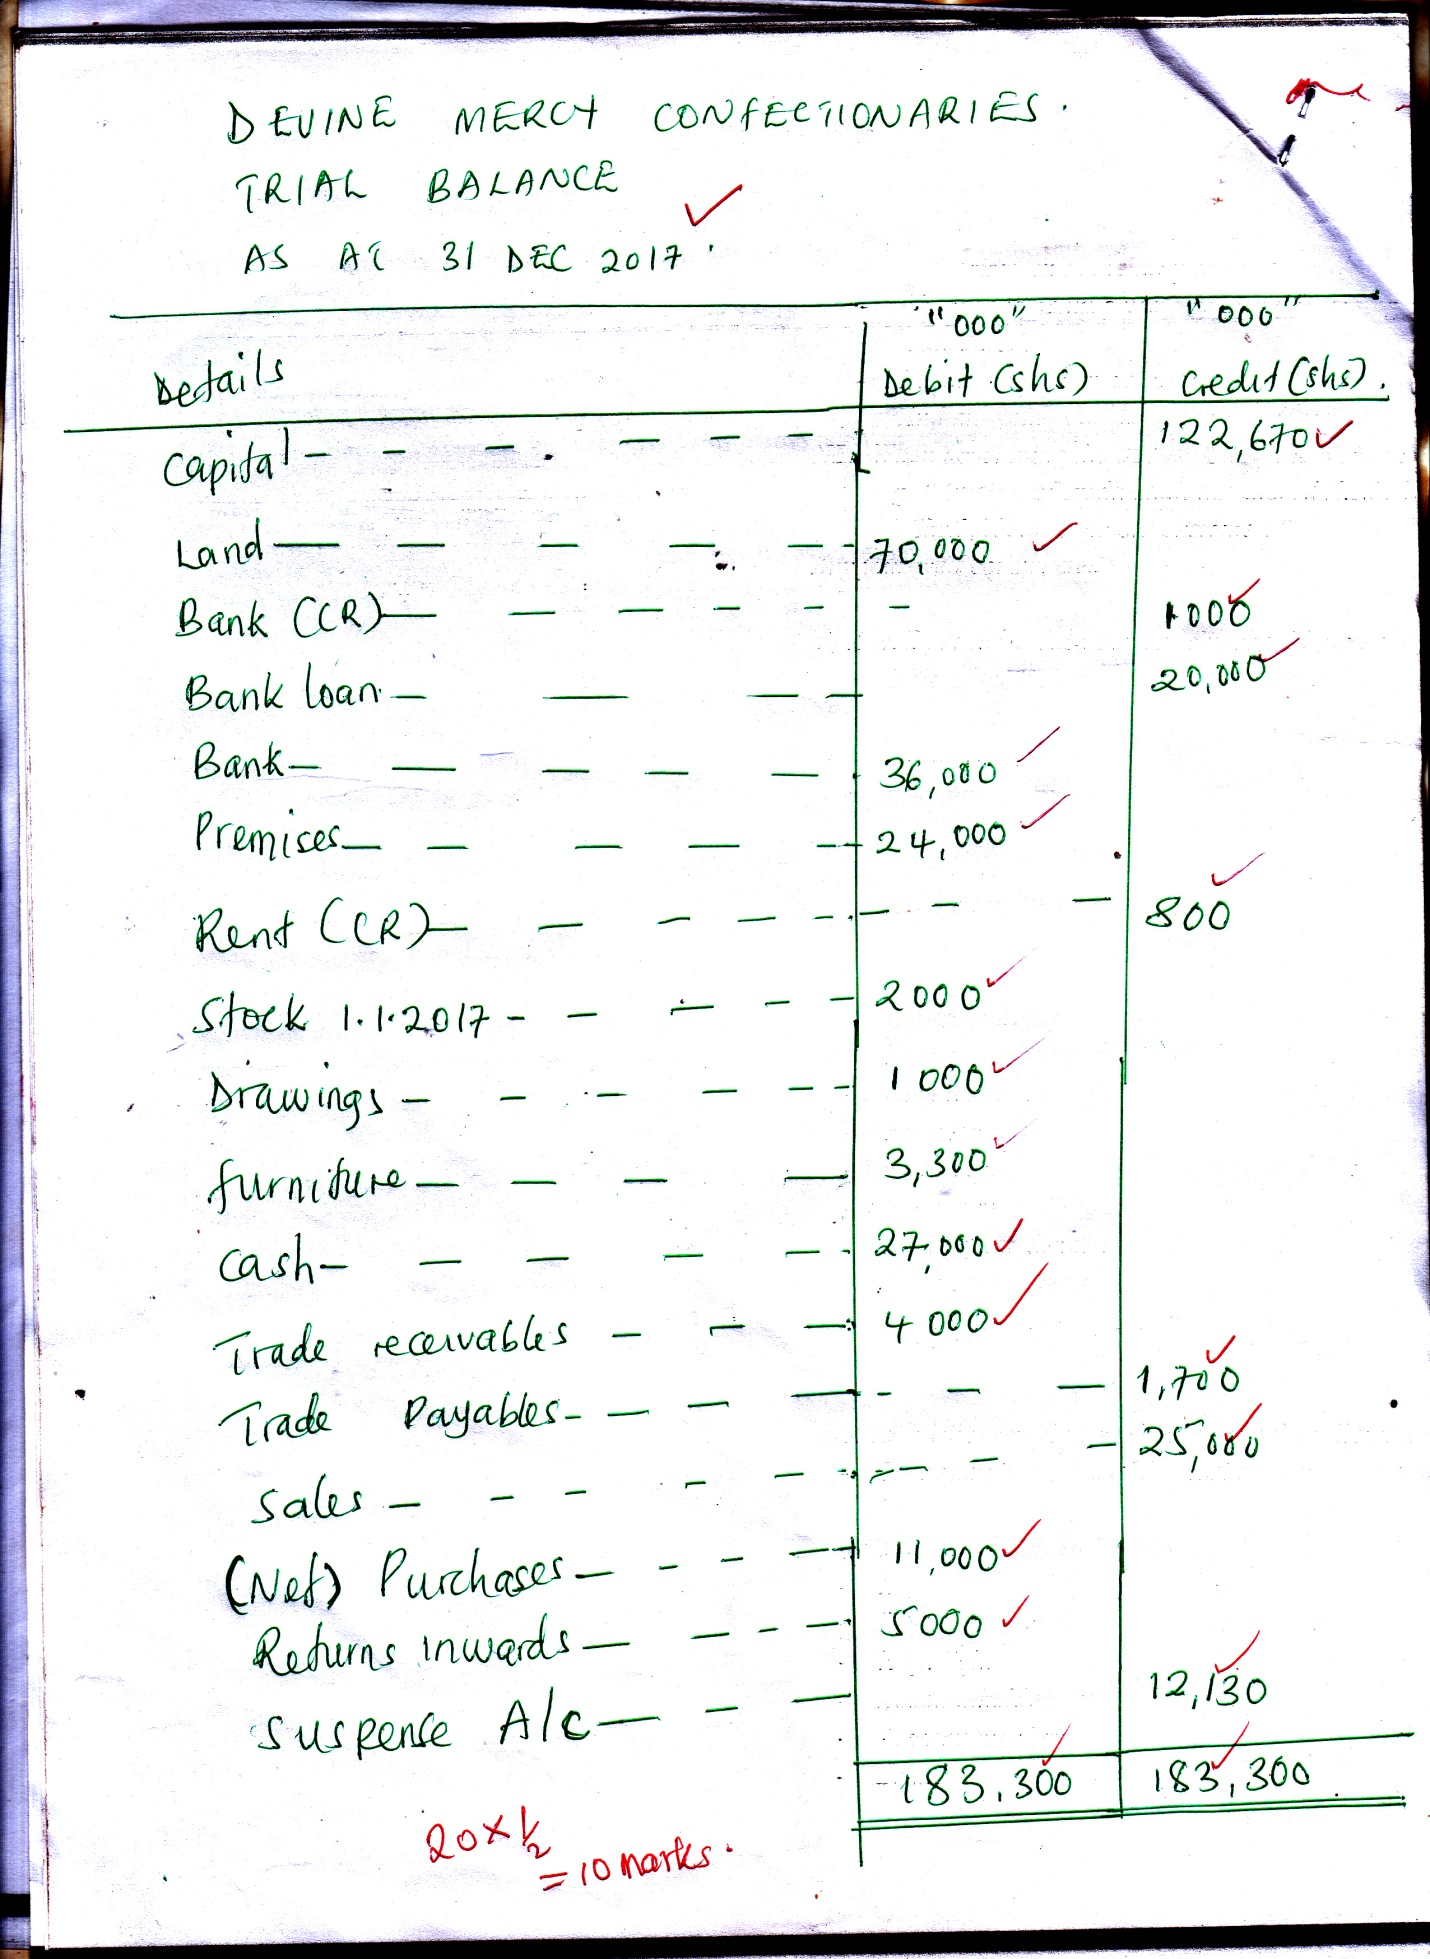 DEVINE MERCY CONFECTIONARIES.
TRIAL BALANCE
AS AT 31 DEC 2017.
"000" "000"
Details Debit (shs) Credit (shs).
Capital 122,670
Land 70,000
Bank (CR) 1000
Bank loan 20,000
Bank 36,000
Premises 24,000
Rent (CR) 800
Stock 1.1.2017 2000
Drawings 1000
furniture 3,300
Cash 27,000
Trade receivables 4000
Trade Payables 1,700
Sales 25,000
(Net) Purchases 11,000
Returns inwards 5000
Suspense A/c 12,130
183,300 183,300
20 x 1/2
= 10 marks.